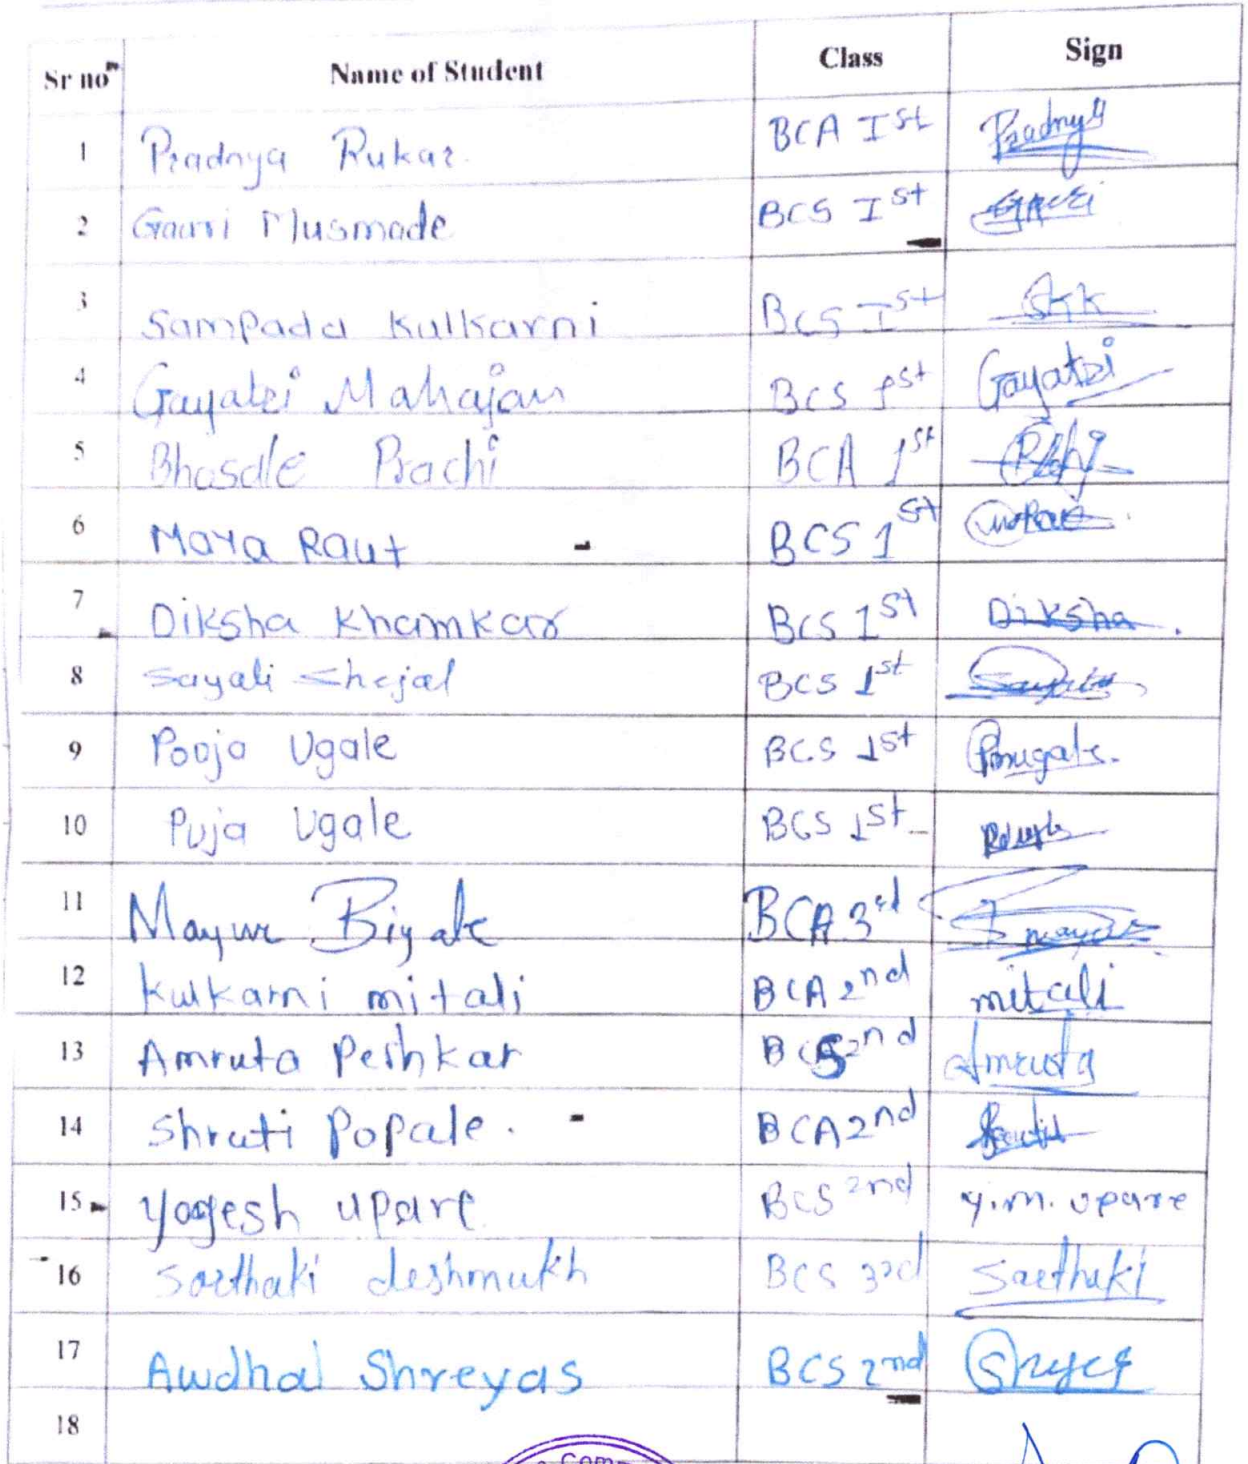 Sr no Name of Student Class Sign
1 Pradnya Rukar. BCA Ist Pradnya
2 Gauri Musmade BCS Ist Gauri
3 Sampada Kulkarni BCS Ist SKK
4 Gayatri Mahajan BCS 1st Gayatri
5 Bhosale Prachi BCA 1st
6 Maya Raut BCS 1st
7 Diksha Khamkar BCS 1st Diksha.
8 Sayali Shejal BCS 1st
9 Pooja Ugale BCS 1st
10 Puja Ugale BCS 1st
11 Mayur BCA 3rd
12 Kulkarni mitali BCA 2nd mitali
13 Amruta Peshkar BCS 2nd Amruta
14 Shruti Popale. BCA 2nd
15 Yogesh upare BCS 2nd y.m. upare
16 Sarthaki deshmukh BCS 3rd Sarthaki
17 Awdhal Shreyas BCS 2nd
18